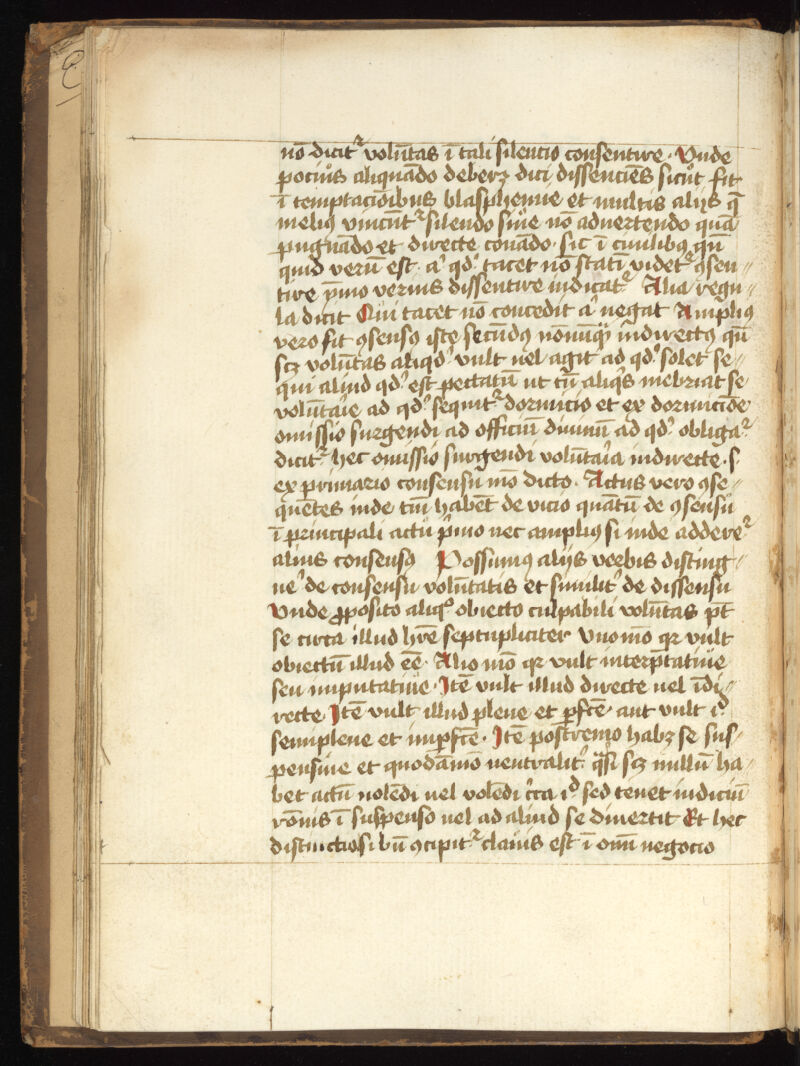 nō dicit᷑ volūtas ī tali silencio consentire. Unde
pociꝰ aliquādo deberꝫ dici dissenciēs sicut fit
ī temptacōībus blasphemie et multis alijs q̄
meliꝰ vincūt᷑ silendo siue nō aduertendo quā
pugnādo et directe conādo. sic ī ciuilibꝰ qn̄
quid verū est. aᵗ qdʼ tacet nō statī videt᷑ ꝯsen⸗
tire p̄mo verius dissentire iudicat᷑ Alia regu⸗
la dicit Qui tacet nō concedit aᵗ negat Ampliꝰ
vero fit ꝯsensꝰ iste secūdꝰ nōnūqᷓ indirectꝰ qn̄
scꝫ volūtas aliqdʼ vult vel agit ad qdʼ solet se⸗
qui aliud qdʼ est peccatū ut cū aliqͥs inebriat se
volūtāīe ad qdʼ sequit᷑ dormicio et ex dormicōe
omissio surgendi ad officiū diuinū ad qdʼ obliga᷑
dicit᷑ hec omissio surgendi volūtaīa indirecte. s.
ex primario consensu mō dicto. Actus vero ꝯse⸗
quētes inde tm̄ habēt de vicio quātū de ꝯsensu
ī principali actu pͥmo nec ampliꝰ si inde addere᷑
alius consensꝰ Possumꝰ alijs verbis disting⸗
ueʼ de consensu volūtatis et similitʼ de dissensu
Unde ꝓposito aliqͦ obiecto culpabili volūtas pt̄
se circa illud hr̄e septupliciter Uno mō qr vult
obiectū illud eē. Alio mō qr vult interp̄tatiue
seu imputatiue. Itē vult illud directe vel īdi⸗
recte Itē vult illud plene et ꝑfc̄e. aut vult iᵈ
semiplene et imꝑfc̄e. Itē postremo habꝫ se sus⸗
pensiue et quodāmō neutralitʼ. qᷓsi scꝫ nullū ha⸗
bet actū nolēdi vel volēdi cͥca iᵈ sed tenet iudiciū
rōnis ī suspenso vel ad aliud se diuertit Et hec
distinctio si bn̄ ꝯcipit᷑ claīus est ī omī negocio